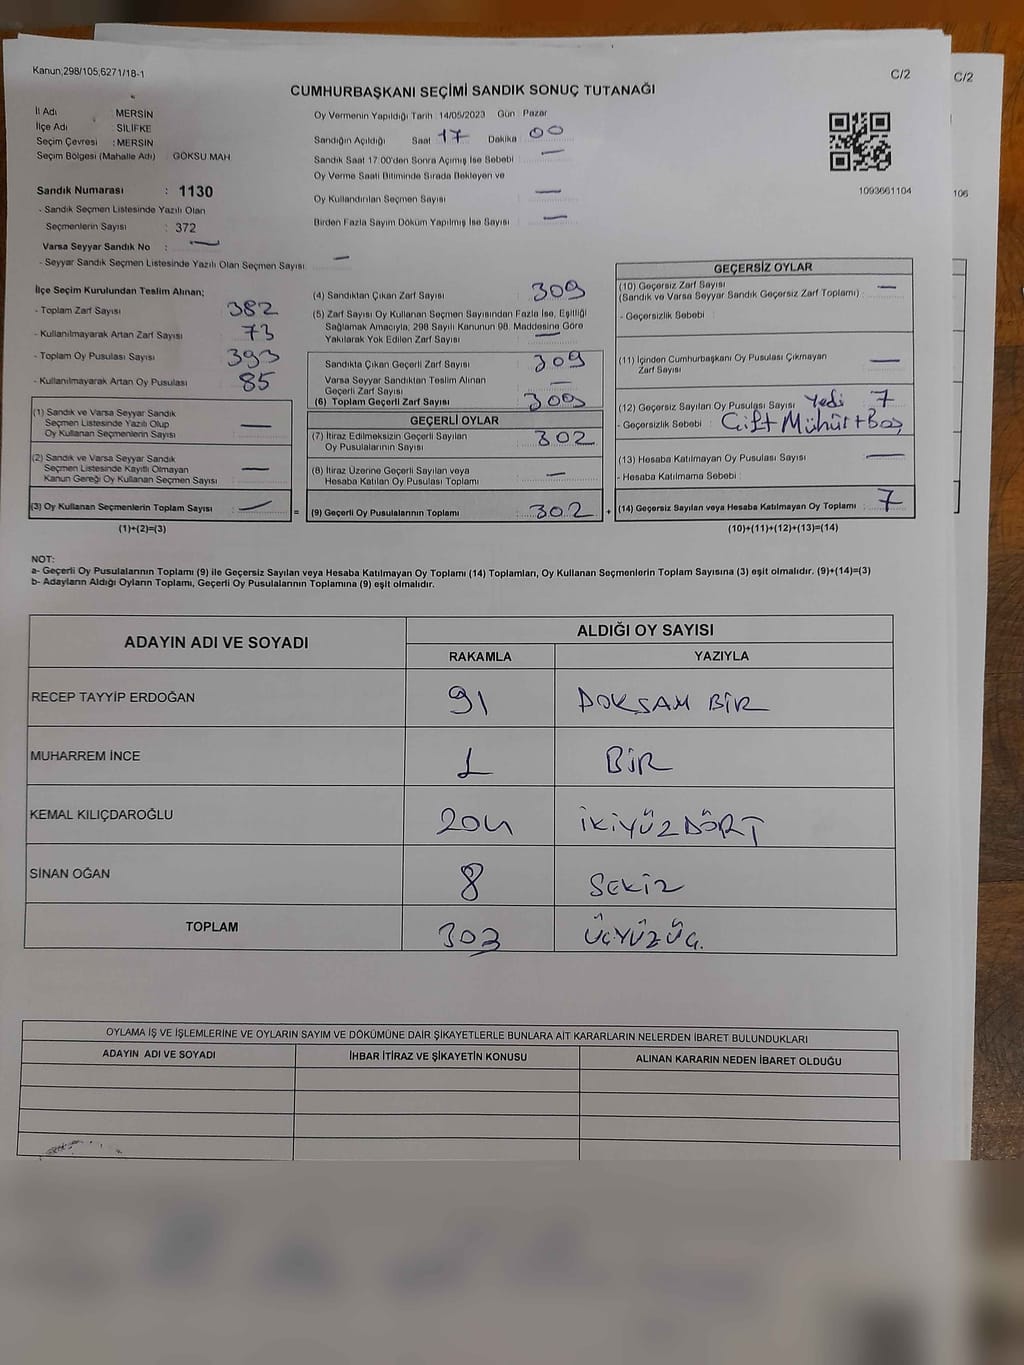 Kanun;298/105,6271/18-1
C/2
C/2
CUMHURBAŞKANI SEÇİMİ SANDIK SONUÇ TUTANAĞI
İl Adı : MERSİN
İlçe Adı : SİLİFKE
Seçim Çevresi : MERSİN
Seçim Bölgesi (Mahalle Adı) GÖKSU MAH
Sandık Numarası : 1130
- Sandık Seçmen Listesinde Yazılı Olan
Seçmenlerin Sayısı : 372
Varsa Seyyar Sandık No : —
- Seyyar Sandık Seçmen Listesinde Yazılı Olan Seçmen Sayısı —
Oy Vermenin Yapıldığı Tarih : 14/05/2023 Gün Pazar
Sandığın Açıldığı Saat 17 Dakika 00
Sandık Saat 17.00'den Sonra Açılmış İse Sebebi —
Oy Verme Saati Bitiminde Sırada Bekleyen ve
Oy Kullandırılan Seçmen Sayısı —
Birden Fazla Sayım Döküm Yapılmış İse Sayısı —
1093661104
106
İlçe Seçim Kurulundan Teslim Alınan;
- Toplam Zarf Sayısı 382
- Kullanılmayarak Artan Zarf Sayısı 73
- Toplam Oy Pusulası Sayısı 393
- Kullanılmayarak Artan Oy Pusulası 85
(1) Sandık ve Varsa Seyyar Sandık
Seçmen Listesinde Yazılı Olup
Oy Kullanan Seçmenlerin Sayısı —
(2) Sandık ve Varsa Seyyar Sandık
Seçmen Listesinde Kayıtlı Olmayan
Kanun Gereği Oy Kullanan Seçmen Sayısı —
(3) Oy Kullanan Seçmenlerin Toplam Sayısı —
(1)+(2)=(3)
(4) Sandıktan Çıkan Zarf Sayısı 309
(5) Zarf Sayısı Oy Kullanan Seçmen Sayısından Fazla İse, Eşitliği
Sağlamak Amacıyla, 298 Sayılı Kanunun 98. Maddesine Göre
Yakılarak Yok Edilen Zarf Sayısı —
Sandıkta Çıkan Geçerli Zarf Sayısı 309
Varsa Seyyar Sandıktan Teslim Alınan
Geçerli Zarf Sayısı —
(6) Toplam Geçerli Zarf Sayısı 309
GEÇERLİ OYLAR
(7) İtiraz Edilmeksizin Geçerli Sayılan
Oy Pusulalarının Sayısı 302
(8) İtiraz Üzerine Geçerli Sayılan veya
Hesaba Katılan Oy Pusulası Toplamı —
= (9) Geçerli Oy Pusulalarının Toplamı 302 +
GEÇERSİZ OYLAR
(10) Geçersiz Zarf Sayısı
(Sandık ve Varsa Seyyar Sandık Geçersiz Zarf Toplamı) : —
- Geçersizlik Sebebi :
(11) İçinden Cumhurbaşkanı Oy Pusulası Çıkmayan
Zarf Sayısı —
(12) Geçersiz Sayılan Oy Pusulası Sayısı Yedi 7
- Geçersizlik Sebebi : Çift Mühür+Boş
(13) Hesaba Katılmayan Oy Pusulası Sayısı —
- Hesaba Katılmama Sebebi :
(14) Geçersiz Sayılan veya Hesaba Katılmayan Oy Toplamı 7
(10)+(11)+(12)+(13)=(14)
NOT:
a- Geçerli Oy Pusulalarının Toplamı (9) ile Geçersiz Sayılan veya Hesaba Katılmayan Oy Toplamı (14) Toplamları, Oy Kullanan Seçmenlerin Toplam Sayısına (3) eşit olmalıdır. (9)+(14)=(3)
b- Adayların Aldığı Oyların Toplamı, Geçerli Oy Pusulalarının Toplamına (9) eşit olmalıdır.
ADAYIN ADI VE SOYADI
ALDIĞI OY SAYISI
RAKAMLA YAZIYLA
RECEP TAYYİP ERDOĞAN 91 DOKSAN BİR
MUHARREM İNCE 1 BİR
KEMAL KILIÇDAROĞLU 204 İKİYÜZDÖRT
SİNAN OĞAN 8 SEKİZ
TOPLAM 303 ÜÇYÜZÜÇ.
OYLAMA İŞ VE İŞLEMLERİNE VE OYLARIN SAYIM VE DÖKÜMÜNE DAİR ŞİKAYETLERLE BUNLARA AİT KARARLARIN NELERDEN İBARET BULUNDUKLARI
ADAYIN ADI VE SOYADI İHBAR İTİRAZ VE ŞİKAYETİN KONUSU ALINAN KARARIN NEDEN İBARET OLDUĞU